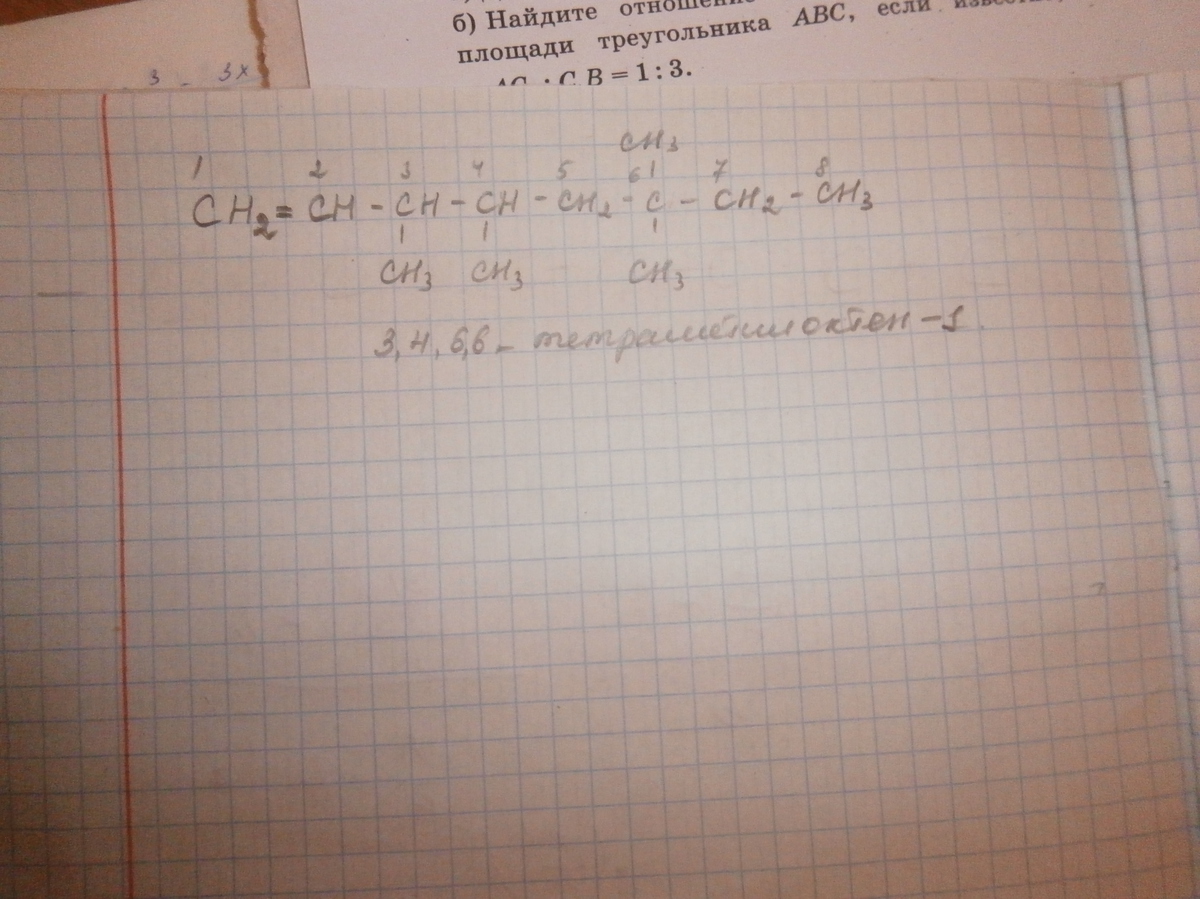 б) Найдите отношение
площади треугольника ABC, если
AC : CB = 1 : 3.
3 - 3x
CH3
1 2 3 4 5 6 7 8
CH2 = CH - CH - CH - CH2 - C - CH2 - CH3
CH3 CH3 CH3
3, 4, 6,6 - тетраметилоктен - 1